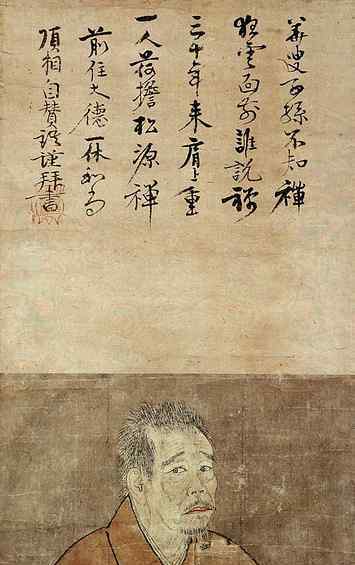 華叟子孫不知禪
狂雲面前誰説禪
三十年来肩上重
一人荷擔松源禪
前住大徳一休和尚
頂相自賛語謹拜書